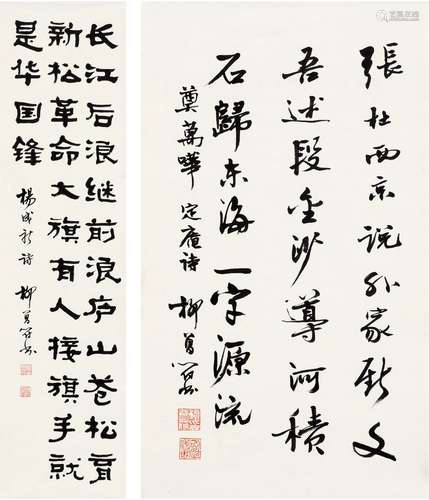 張杜西京說外家斯文
吾述段金沙導河積
石歸东海一字源流
奠萬嘩 定庵诗 柳曾符書
长江后浪继前浪庐山苍松育
新松革命大旗有人接旗手就
是华国锋
楊成 诗 柳曾符书